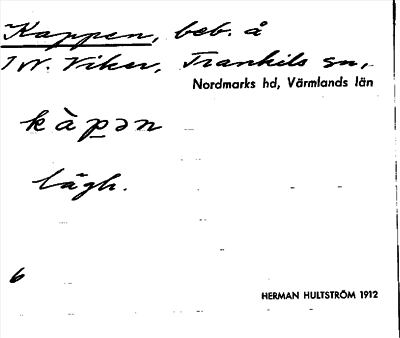 Kappen, beb. å
1 N. Viker, Trankils sn,
Nordmarks hd, Värmlands län
kàpən
lägh.
6
HERMAN HULTSTRÖM 1912